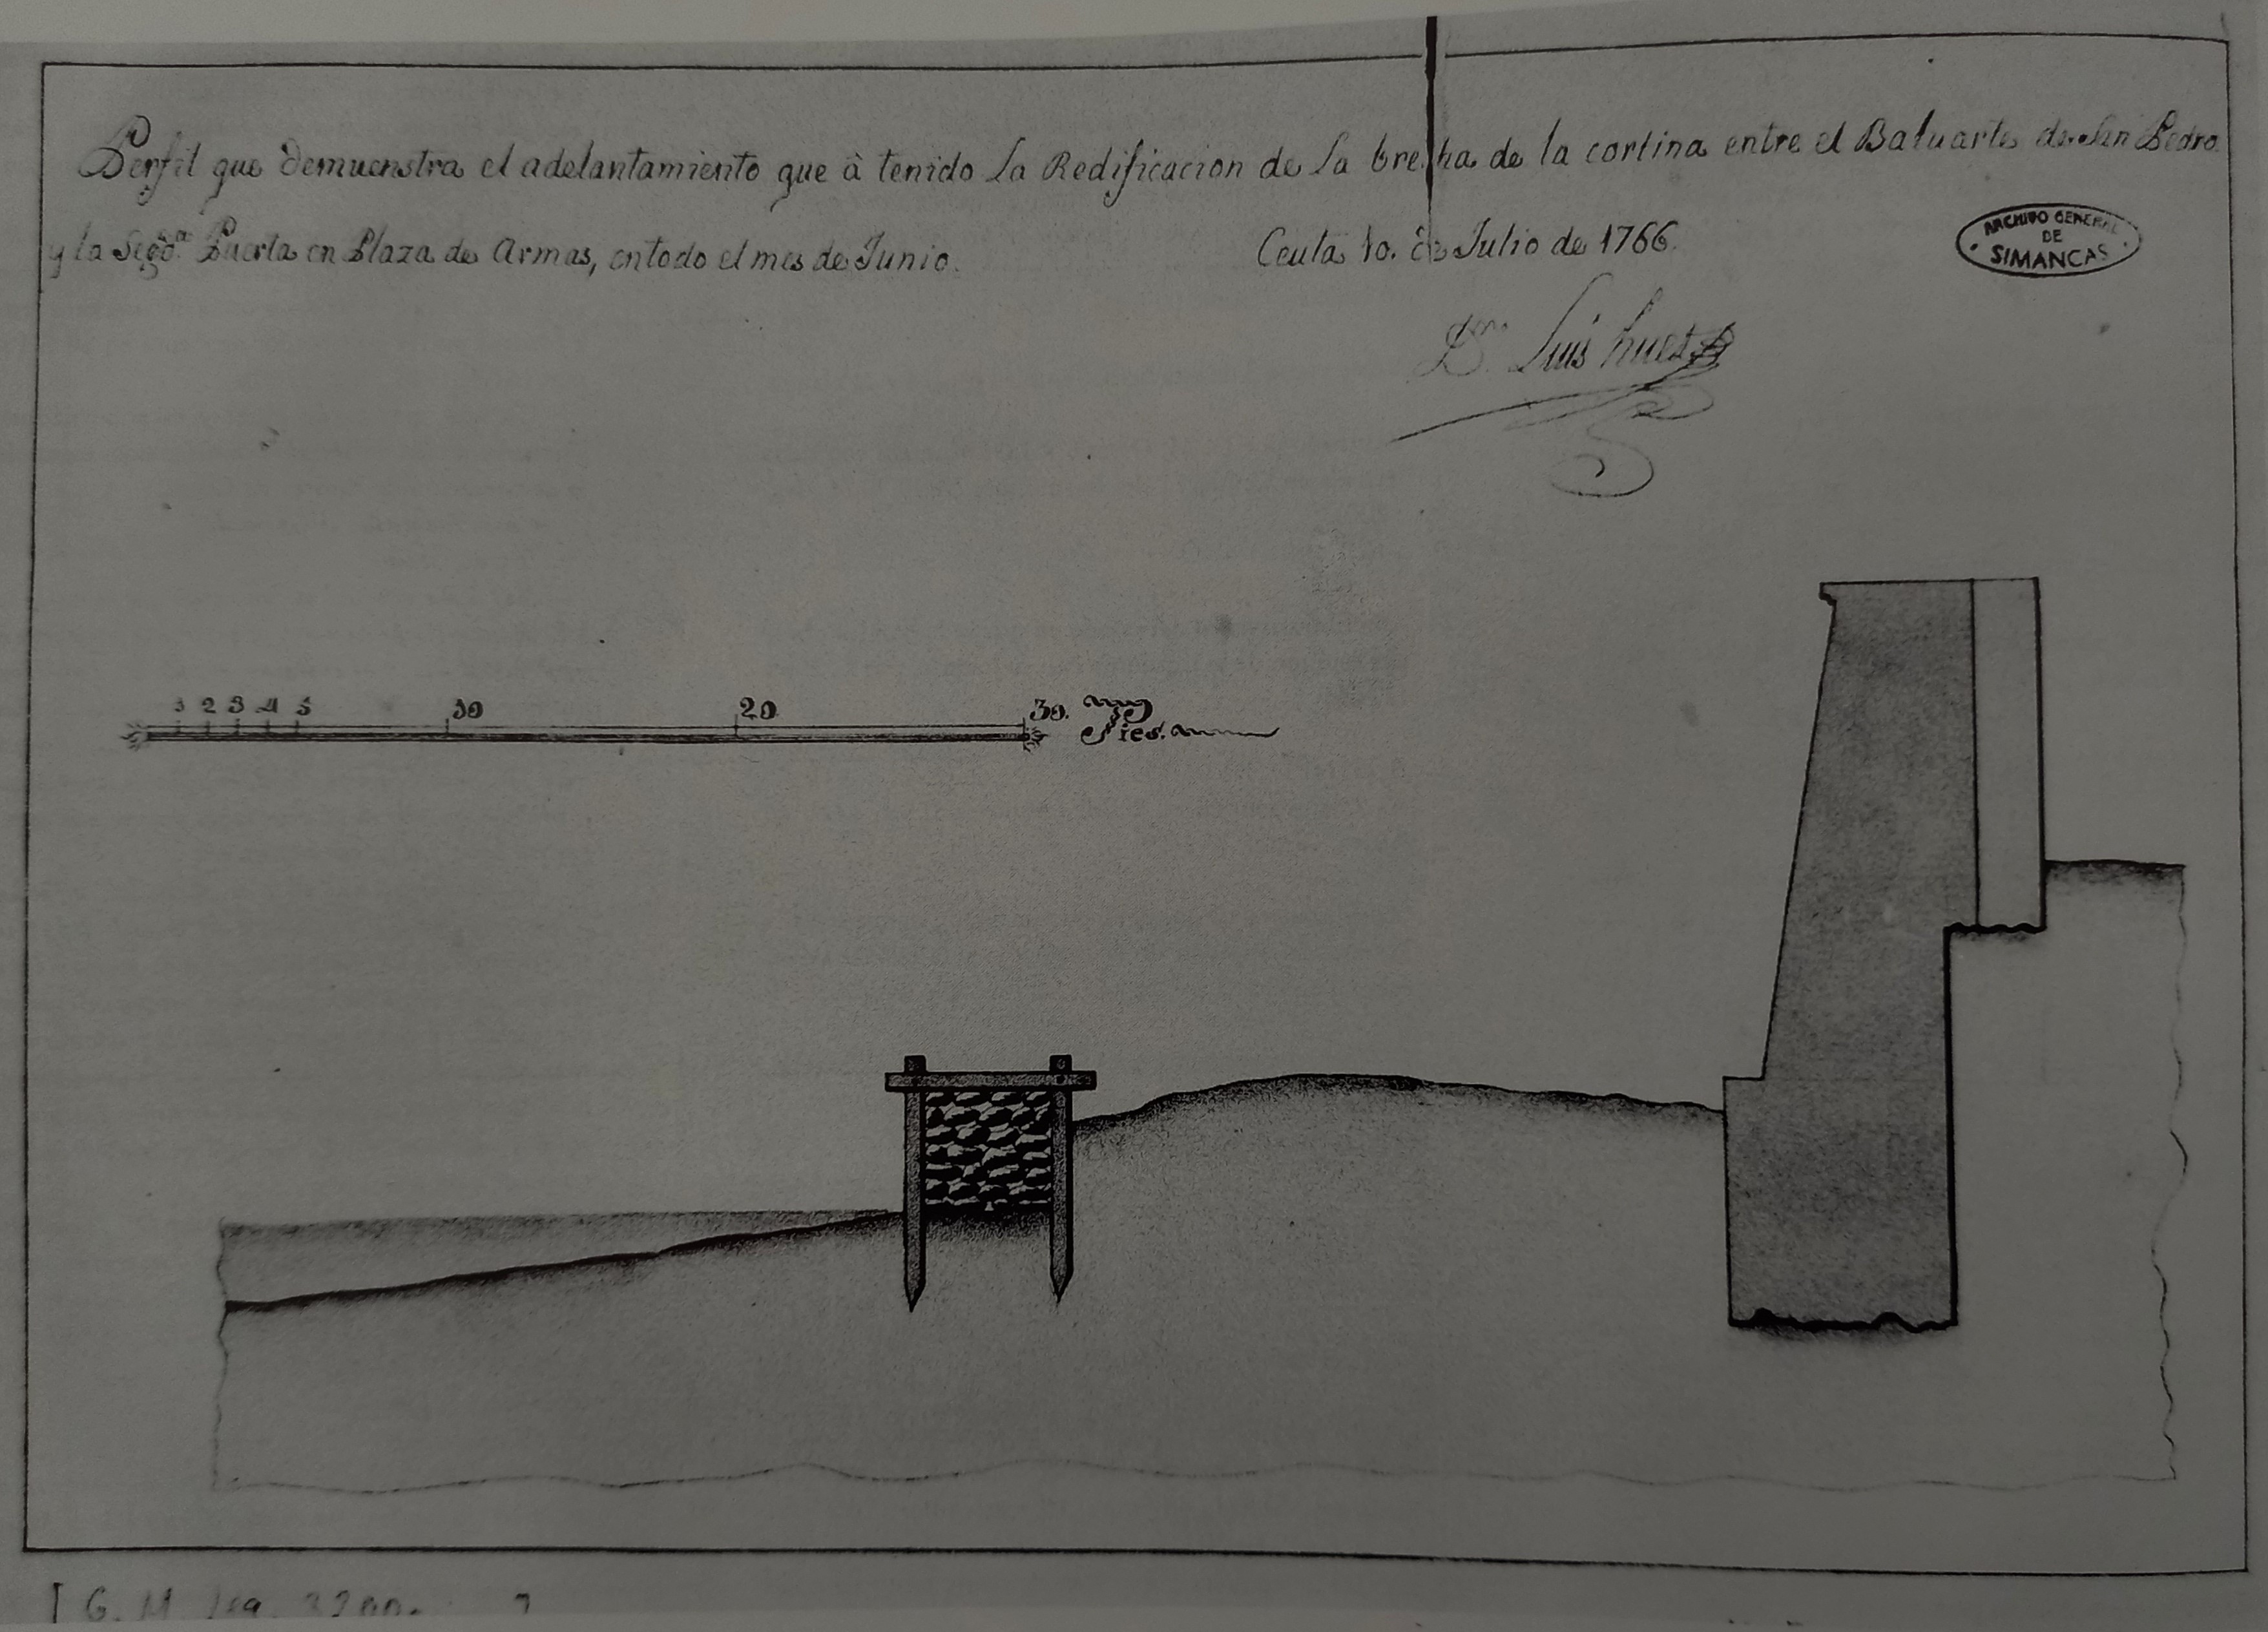 Perfil que demuenstra el adelantamiento que à tenido La Redificacion de La brecha de la cortina entre el Baluarte de San Pedro
y la Segda. Puerta en Plaza de Armas, en todo el mes de Junio.
Ceuta 1o. de Julio de 1766.
ARCHIVO GENERAL
DE
SIMANCAS
Dn. Luis huet
1 2 3 4 5 10 20 30. Pies.
G. M. leg.